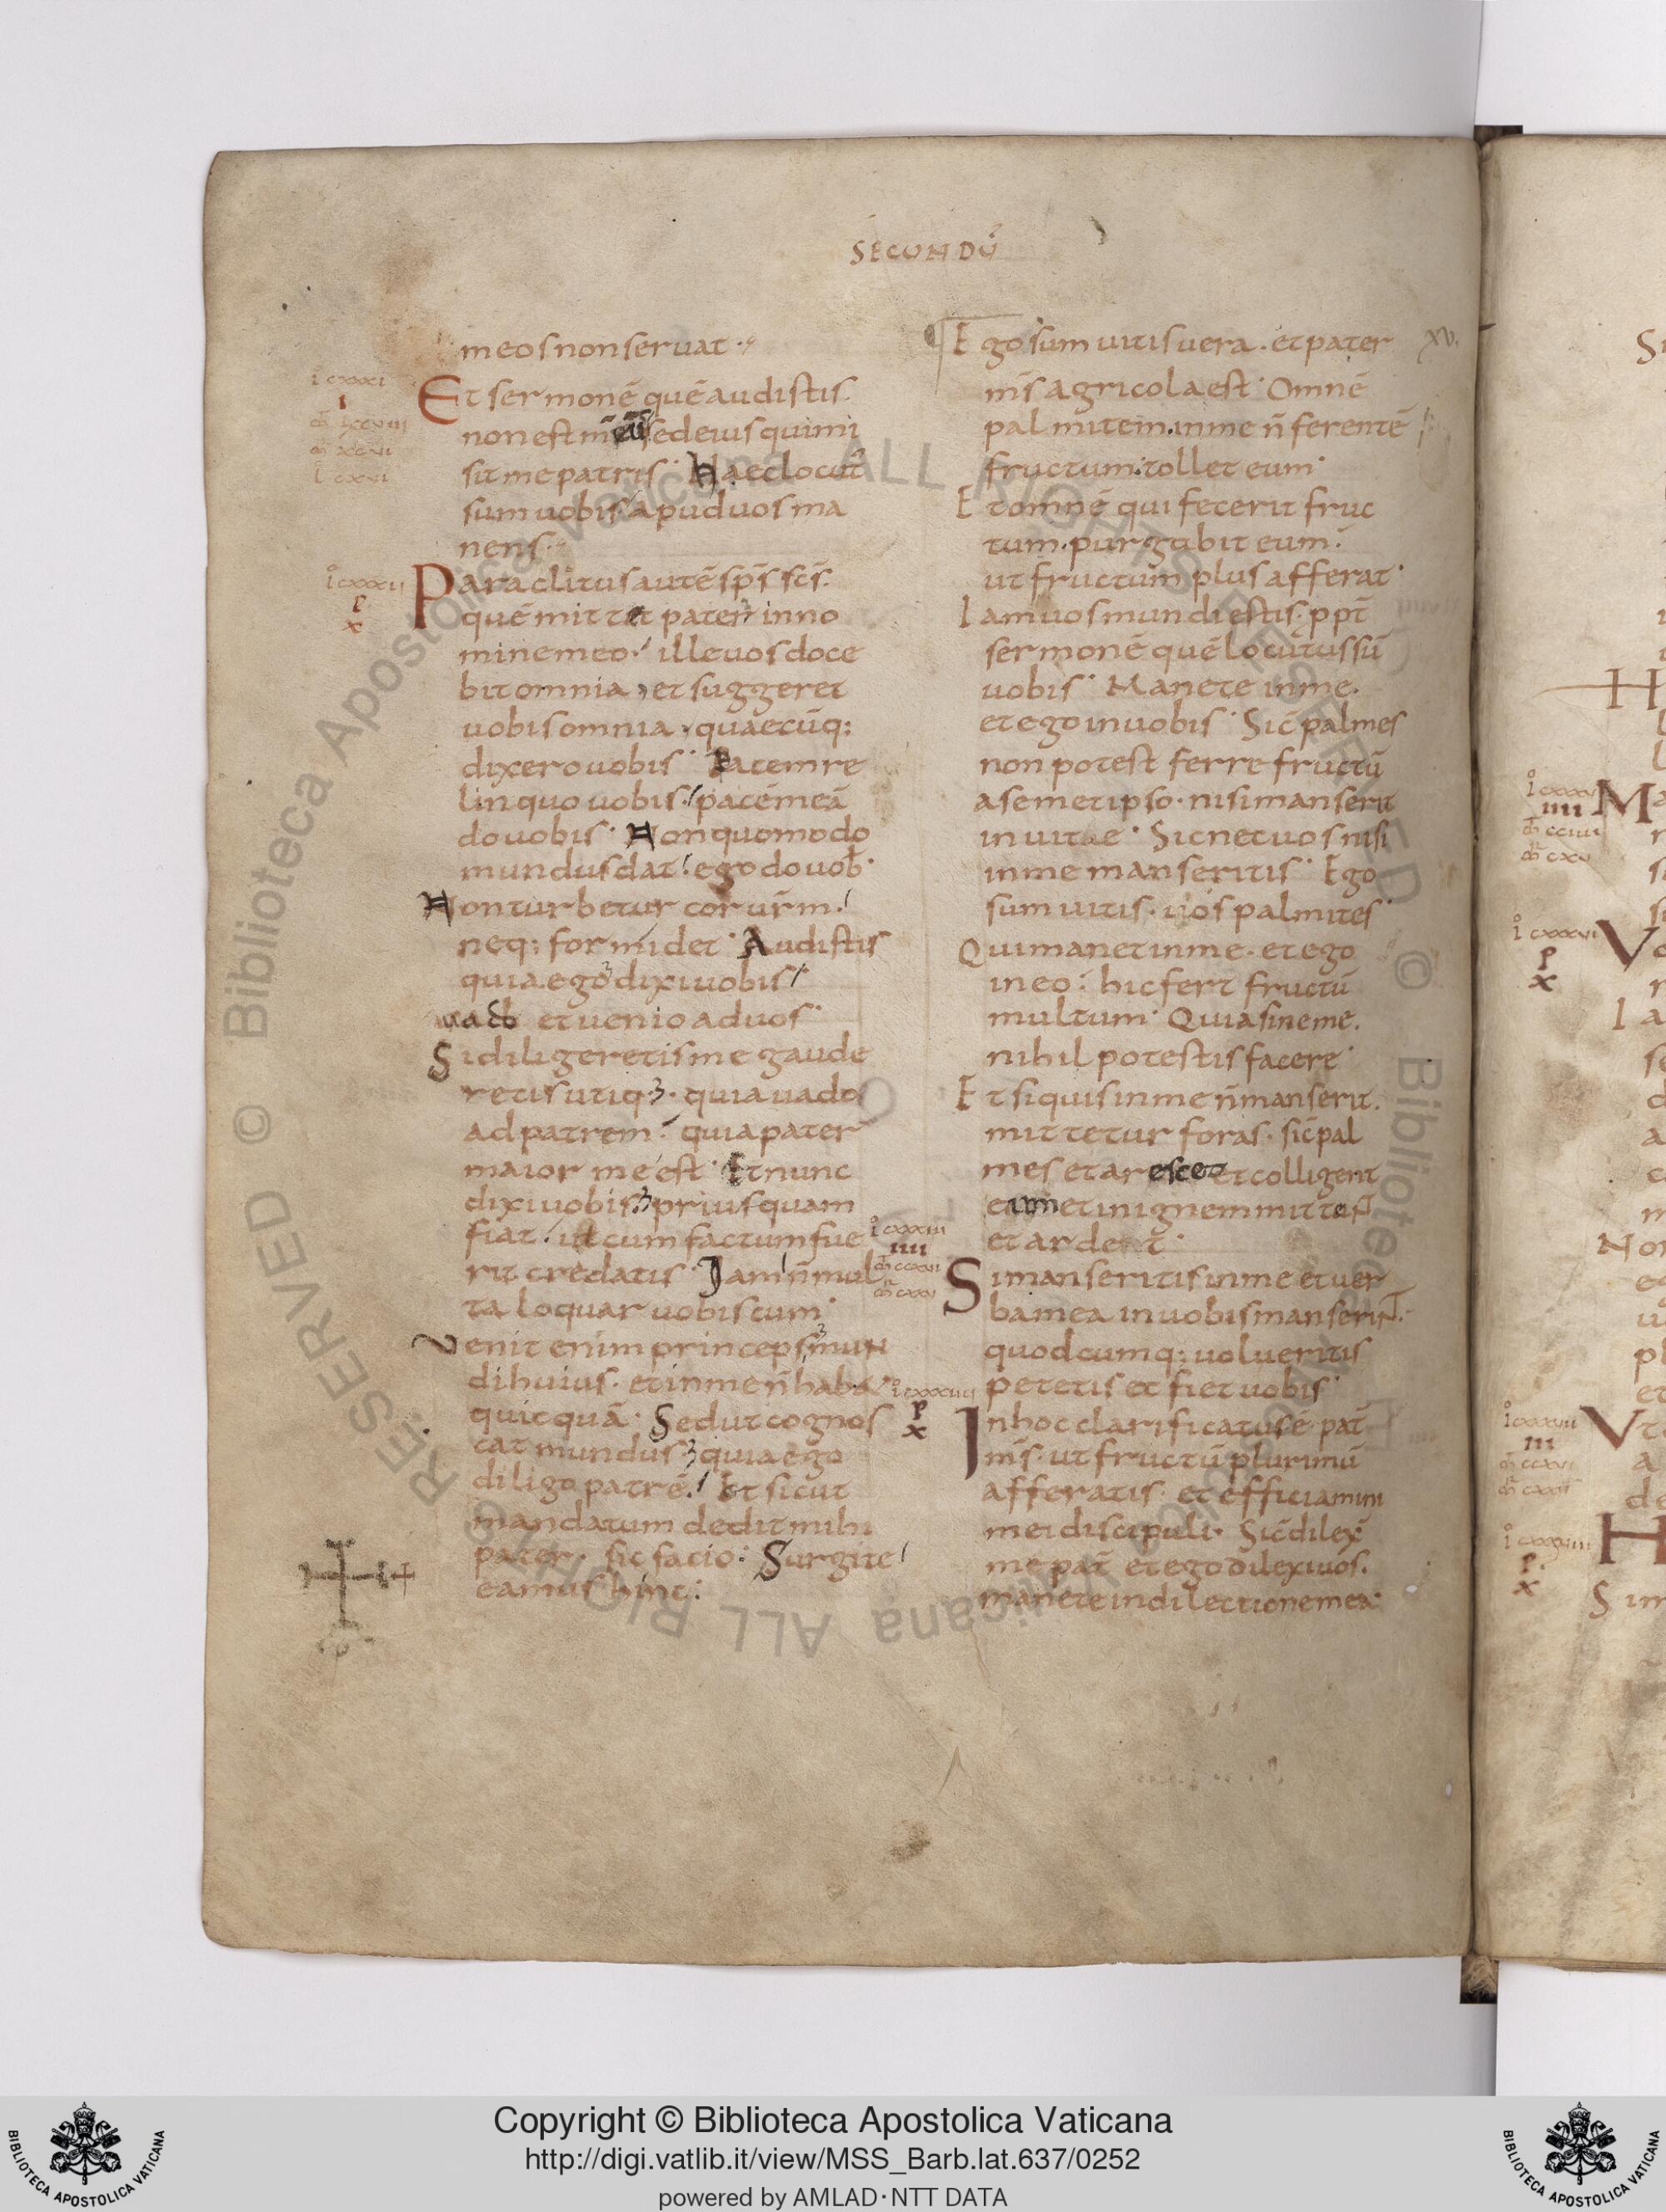 SECUNDŪ
meos non seruat
Et sermonē quē audistis
non est meus sed eius qui mi
sit me patris · Haec locut᾽
sum uobis apud uos ma
nens
Paraclitus autē sp̄s sc̄s
quē mittet pater in no
mine meo · ille uos doce
bit omnia · et suggeret
uobis omnia · quaecūq;
dixero uobis · Pacem re
linquo uobis · pacē meā
do uobis · Non quomodo
mundus dat · ego do uob̄ ·
Non turbetur cor ur̄m ·
neq; formidet · Audistis
quia ego dixi uobis
uado et uenio ad uos ·
Si diligeretis me gaude
retis utiq; · quia uado
ad patrem · quia pater
maior me est · Et nunc
dixi uobis priusquam
fiat · ut cum factum fue
rit credatis · Jam n̄ mul
ta loquar uobiscum ·
Uenit enim princeps mun
di huius · et in me n̄ habet
quicquā · Sed ut cognos
cat mundus quia ego
diligo patrē · Et sicut
mandatum dedit mihi
pater · sic facio : Surgite
eamus hinc :
Ego sum uitis uera · et pater
XV.
m̄s agricola est · Omnē
palmitem in me n̄ ferentē
fructum · tollet eum ·
Et omnē qui fecerit fruc
tum · purgabit eum :
ut fructum plus afferat ·
Iam uos mundi estis · ppt̄
sermonē quē locutus sū
uobis · Manete in me ·
et ego in uobis · Sic palmes
non potest ferre fructū
a semetipso · nisi manserit
in uite · Sic nec uos nisi
in me manseritis · Ego
sum uitis · uos palmites ·
Qui manet in me · et ego
in eo : hic fert fructū
multum · Quia sine me ·
nihil potestis facere ·
Et si quis in me n̄ manserit ·
mittetur foras · sic pal
mes et arescet et colligent
eum et in ignem mittent
et ardet ·
Si manseritis in me et uer
ba mea in uobis manserint ·
quodcumq; uolueritis
petetis et fiet uobis ·
In hoc clarificatus ē · pat̄
m̄s · ut fructū plurimū
afferatis · et efficiamini
mei discipuli · Sic dilex̄
me pat̄ et ego dilexi uos ·
manete in dilectione mea ·
Copyright © Biblioteca Apostolica Vaticana
http://digi.vatlib.it/view/MSS_Barb.lat.637/0252
powered by AMLAD·NTT DATA
BIBLIOTECA APOSTOLICA VATICANA
BIBLIOTECA APOSTOLICA VATICANA